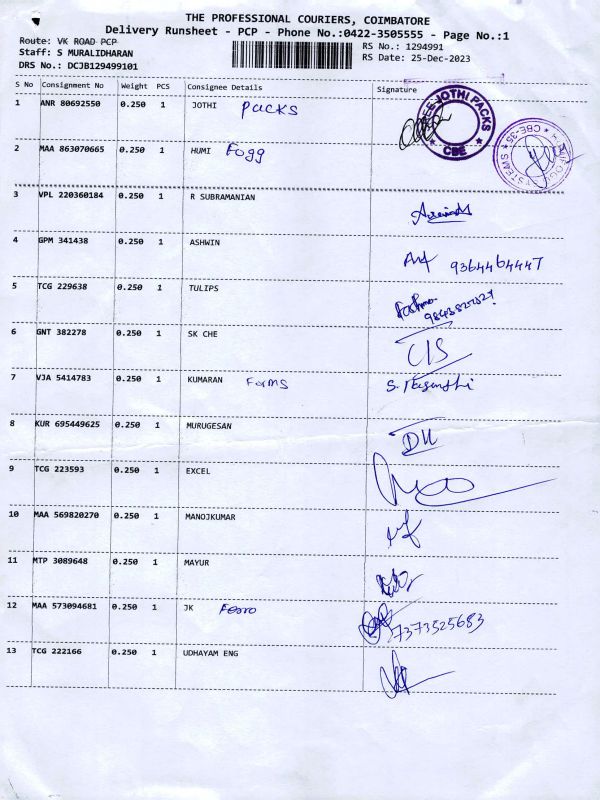 THE PROFESSIONAL COURIERS, COIMBATORE
Delivery Runsheet - PCP - Phone No.:0422-3505555 - Page No.:1
Route: VK ROAD PCP
RS No.: 1294991
Staff: S MURALIDHARAN
RS Date: 25-Dec-2023
DRS No.: DCJB129499101
S No Consignment No Weight PCS Consignee Details Signature
1 ANR 80692550 0.250 1 JOTHI Packs
JOTHI PACKS CBE
2 MAA 863070665 0.250 1 HUMI Fogg
CBE-35
3 VPL 220360184 0.250 1 R SUBRAMANIAN
4 GPM 341438 0.250 1 ASHWIN 9364464447
5 TCG 229638 0.250 1 TULIPS
6 GNT 382278 0.250 1 SK CHE
7 VJA 5414783 0.250 1 KUMARAN Forms
8 KUR 695449625 0.250 1 MURUGESAN
9 TCG 223593 0.250 1 EXCEL
10 MAA 569820270 0.250 1 MANOJKUMAR
11 MTP 3089648 0.250 1 MAYUR
12 MAA 573094681 0.250 1 JK Ferro 7373525683
13 TCG 222166 0.250 1 UDHAYAM ENG